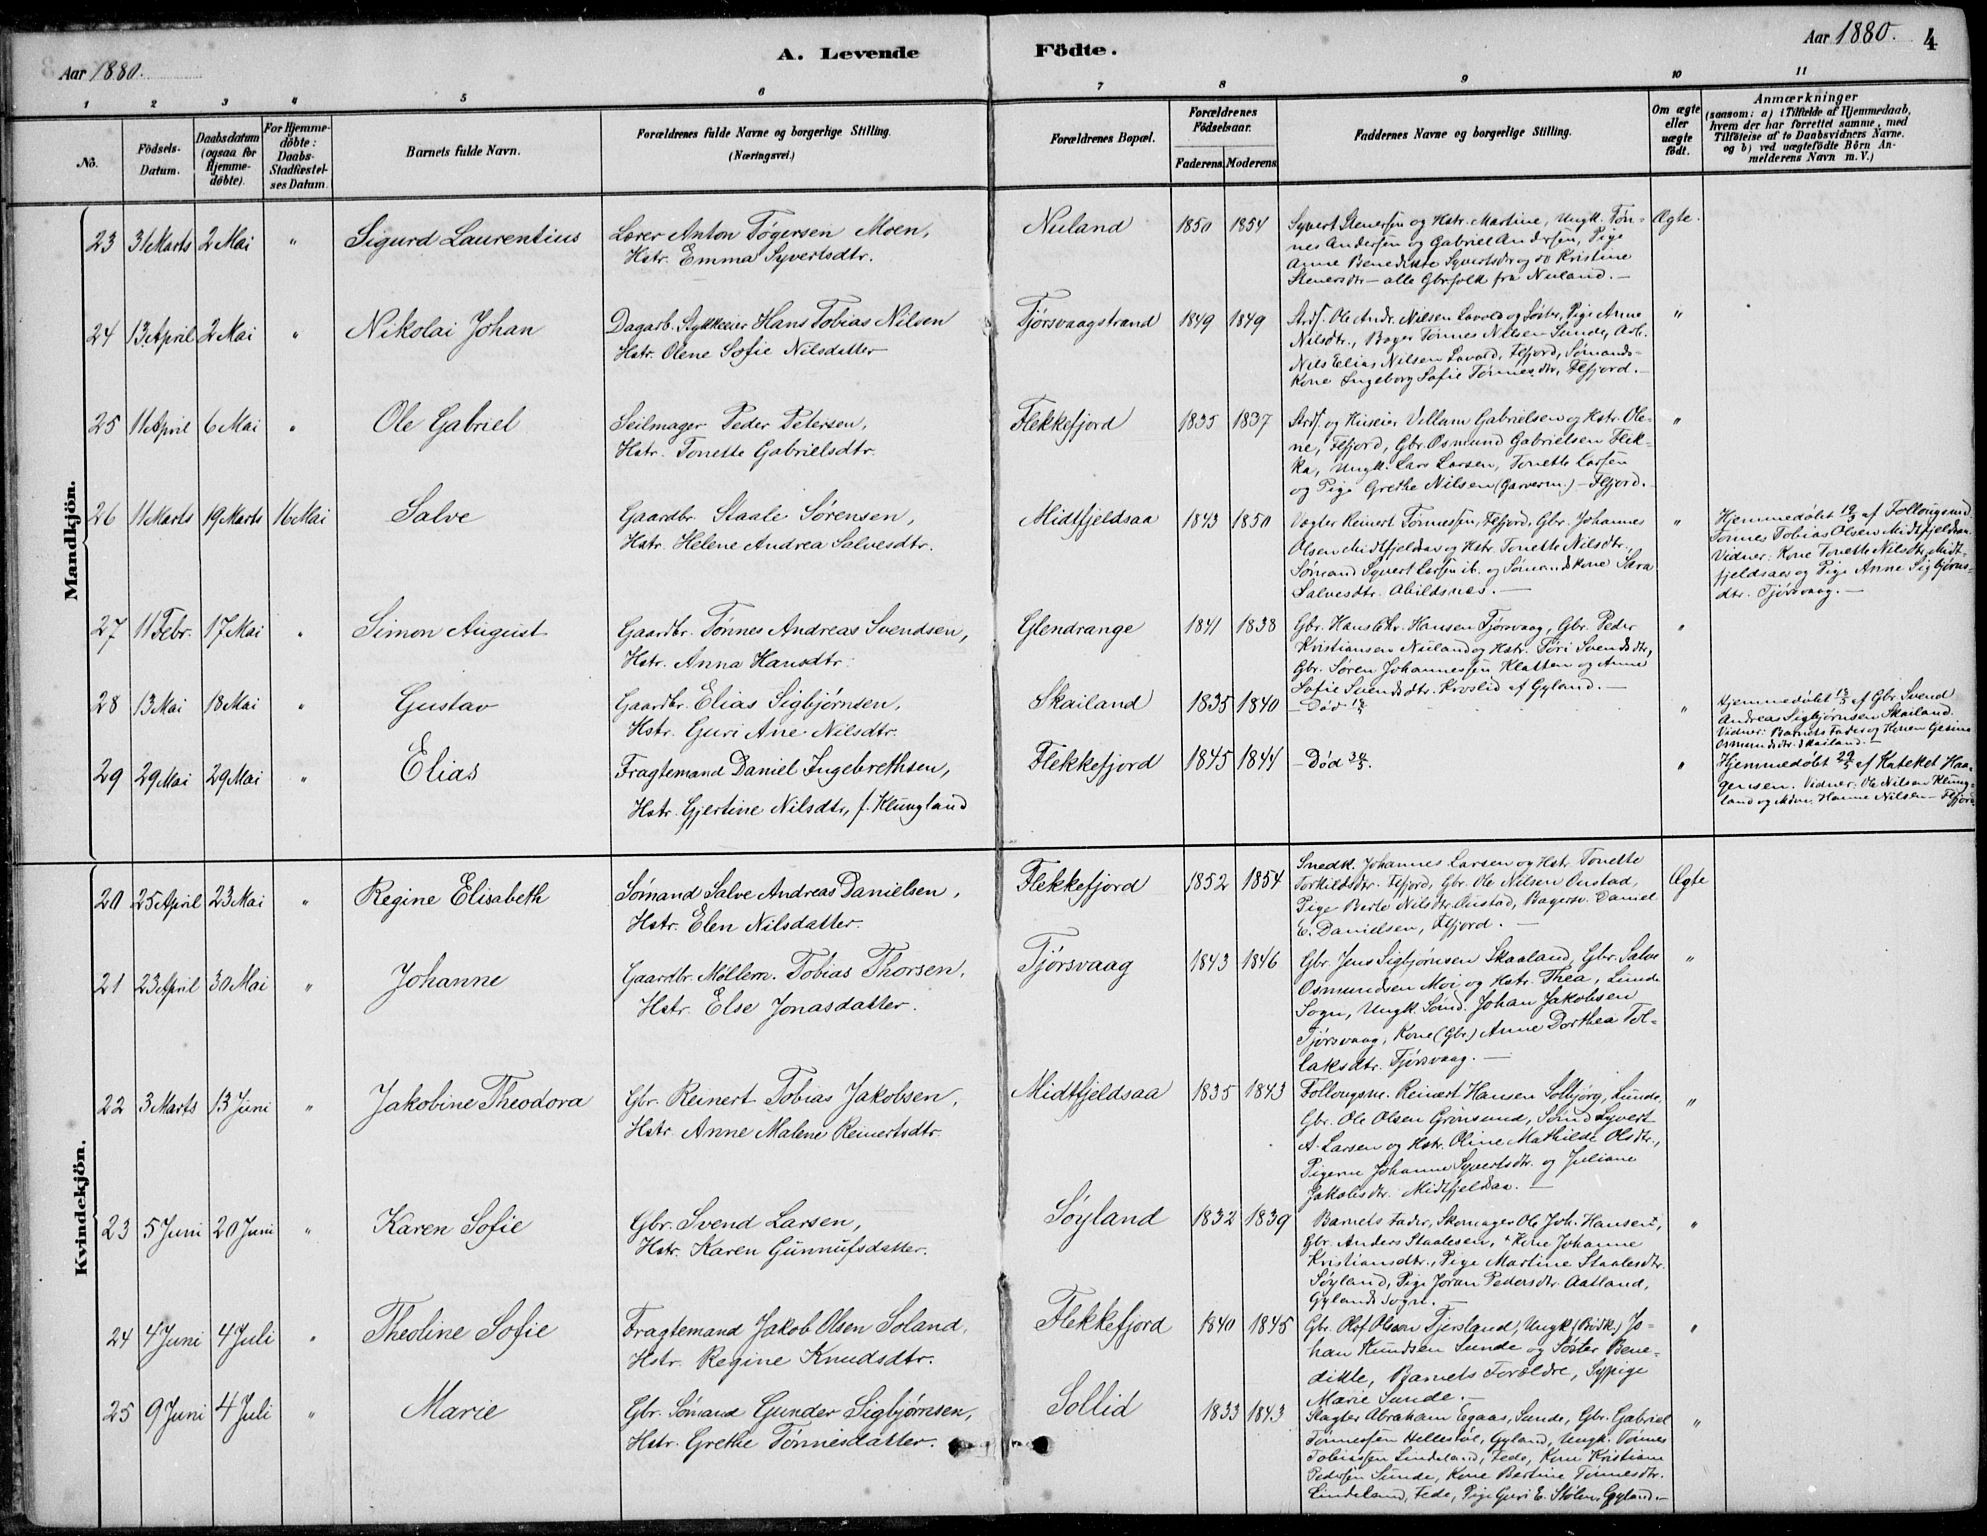 Aar 1880.
A. Levende
Födte.
Aar 1880.
4
1 2 3 4 5 6 7 8 9 10 11
No.
Födsels-Datum.
Daabsdatum (ogsaa for Hjemme-döbte).
For Hjemme-döbte: Daabs-Stadfæstel-ses Datum.
Barnets fulde Navn.
Forældrenes fulde Navne og borgerlige Stilling.
(Næringsvei.)
Forældrenes Bopæl.
Forældrenes Födselsaar.
Faderens. Moderens.
Faddernes Navne og borgerlige Stilling.
Om ægte eller uægte födt.
Anmærkninger
(saasom: a) i Tilfælde af Hjemmedaab,
hvem der har forrettet samme, med
Tilföielse af to Daabsvidners Navne.
og b) ved uægtefödte Börn An-
melderens Navn m. V.)
Mandkjön.
23 31 Marts 2 Mai " Sigurd Laurentius Lærer Anton Tögersen Moen, Nuland 1850 1854 Syvert Stenersen og Hstr. Martine, Ungk. Tön- Ægte.
Hstr. Emma Syvertsdtr. nes Andersen og Gabriel Andersen, Pige
Anne Benedikte Syvertsdtr og do Kristine
Stenersdtr – alle Gbrfolk fra Nuland. –
24 13 April 2 Mai " Nikolai Johan Dagarb. Stykkeier Hans Tobias Nilsen Tjörsvaagstrand 1849 1849 Ole Andr. Nilsen og Söster, Pige Anne "
Hstr. Olene Sofie Nilsdatter Nilsdtr., Bager Tönnes Nilsen Sunde, Arb.
Nils Elias Nilsen Lavold, Flfjord, Sömands-
Kone Ingeborg Sofie Tönnesdtr, Flfjord. –
25 11 April 6 Mai " Ole Gabriel Seilmager Peder Petersen, Flekkefjord 1835 1837 og Huseier Villum Gabrielsen og Hstr. Ole- "
Hstr. Tonette Gabrielsdtr. ne, Flfjord, Gbr. Osmund Gabrielsen Flik-
ka, Ungk. Lars Larsen, Tonette Larsen
og Pige Grethe Nilsen (Garverm.) – Flfjord.
26 11 Marts 19 Marts 16 Mai Salve Gaardbr. Staale Sörensen, Midtfjeldsaa 1843 1850 Vægter Reinert Tönnessen, Flfjord, Gbr. Johannes " Hjemmedöbt 19/3 af
Hstr. Helene Andrea Salvesdtr. Olsen Midtfjeldsaa og Hstr. Tonette Nilsdtr., Tönnes Tobias Olsen Midtfjeldsaa.
Sömand Syvert Larsen ib. og Sömandskone Sara Vidner: Kone Tonette Nilsdtr. Midt-
Salvesdtr. Abildsnes. – fjeldsaa og Pige Anne Sigbjörns-
dtr. Tjörsvaag. –
27 11 Febr. 17 Mai " Simon August Gaardbr. Tönnes Andreas Svendsen, Glendrange 1841 1838 Gbr. Hans Chr. Hansen Tjörsvaag, Gbr. Peder "
Hstr. Anna Hansdtr. Kristiansen Nuland og Hstr. Töri Svendsdtr,
Gbr. Sören Johannessen Klatten og Anne
Sofie Svendsdtr. Kroslid af Gyland. –
28 13 Mai 18 Mai " Gustav Gaardbr. Elias Sigbjörnsen, Skailand 1835 1840 – Död " Hjemmedöbt af Gbr. Svend
Hstr. Guri Ane Nilsdtr. Andreas Sigbjörnsen Skailand.
Vidner: Barnets Fader og Konen Gesine
Osmundsdtr. Skailand. –
29 29 Mai 29 Mai " Elias Fragtemand Daniel Ingebrethsen, Flekkefjord 1845 1844 – Död " Hjemmedöbt 29/5 af Kateket Haa-
Hstr. Gjertine Nilsdtr, f. Klungland gensen. Vidner: Ole Nilsen Klung-
land og Hanne Nilsen – Flfjord
Kvindekjön.
20 25 April 23 Mai " Regine Elisabeth Sömand Salve Andreas Danielsen, Flekkefjord 1852 1854 Snedk. Johannes Larsen og Hstr. Tonette Ægte
Hstr. Elen Nilsdatter. Torkildsdtr. Flfjord, Gbr. Ole Nilsen Onstad,
Pige Berte Nilsdtr. Onstad, Bagersv. Daniel
E. Danielsen, Flfjord. –
21 23 April 30 Mai " Johanne Gaardbr. Möllern. Tobias Thorsen, Tjörsvaag 1843 1846 Gbr. Jens Sigbjörnsen Skaaland, Gbr. Salve "
Hstr. Else Jonasdatter. Osmundsen Moi og Hstr. Thea, Lunde
Sogn, Ungk. Sömd. Johan Jakobsen
Tjörsvaag, Kone (Gbr.) Anne Dorthea Tol-
laksdtr. Tjörsvaag. –
22 3 Marts 13 Juni " Jakobine Theodora Gbr. Reinert Tobias Jakobsen, Midtfjeldsaa 1835 1843 Reinert Hansen Solbjörg, Lunde, "
Hstr. Anne Malene Reinertsdtr. Gbr. Ole Olsen Grönsund, Sömd Syvert
A. Larsen og Hstr. Oline Mathilde Olsdtr.,
Pigerne Johanne Syvertsdtr. og Juliane
Jakobsdtr. Midtfjeldsaa. –
23 5 Juni 20 Juni " Karen Sofie Gbr. Svend Larsen, Söyland 1832 1839 Barnets Fader, Skomager Ole Joh. Hansen, "
Hstr. Karen Gunnufsdatter. Gbr. Anders Staalesen, Kone Johanne
Kristiansdtr., Pige Martine Staalesdtr.
Söyland, Pige Joran Pedersdtr. Aatland,
Gylands Sogn. –
24 4 Juni 4 Juli " Theoline Sofie Fragtemand Jakob Olsen Soland, Flekkefjord 1840 1845 Gbr. Olof Olsen Tjersland, Ungk (Bödk.) Jo- "
Hstr. Regine Knudsdtr. han Knudsen Sunde og Söster Bene-
dikte, Barnets Forældre, Sypige
Marie Sunde. –
25 9 Juni 4 Juli " Marie Gbr. Sömand Gunder Sigbjörnsen, Sollid 1833 1843 Slagter Abraham Egaas, Sunde, Gbr. Gabriel "
Hstr. Grethe Tönnesdatter. Tönnessen Hellestöl, Gyland, Ungk. Tönnes
Tobiassen Lindeland, Fede, Kone Kristiane
Pedersen Sunde, Kone Bertine Tönnesdtr.
Lindeland, Fede, Pige Guri E. Stölen, Gyland. –